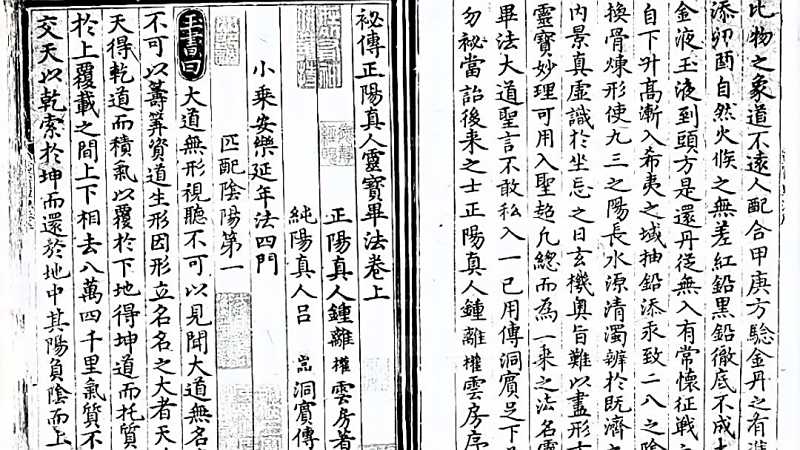 比物之象道不遠人配合甲庚方驗金丹之有
添卯酉自然火候之無差紅鉛黑鉛徹底不成
金液玉液到頭方是還丹從無入有常懷征戰
自下升高漸入希夷之域抽鉛添汞致二八之陰
換骨煉形使九三之陽長水源清濁辨於既濟
内景真虛識於坐忘之日玄機奧旨難以盡形
靈寶妙理可用入聖超凡總而為一来之法名靈
畢法大道聖言不敢私入一已用傳洞賓足下
勿祕當詒後来之士正陽真人鍾離權雲房序
祕傳正陽真人靈寶畢法卷上
正陽真人鍾離權雲房著
純陽真人吕嵓洞賓傳
小乘安樂延年法四門
匹配陰陽第一
玉書曰大道無形視聽不可以見聞大道無名
不可以籌筭資道生形因形立名名之大者天
天得乾道而積氣以覆於下地得坤道而托質
於上覆載之間上下相去八萬四千里氣質不
交天以乾索於坤而還於地中其陽負陰而上